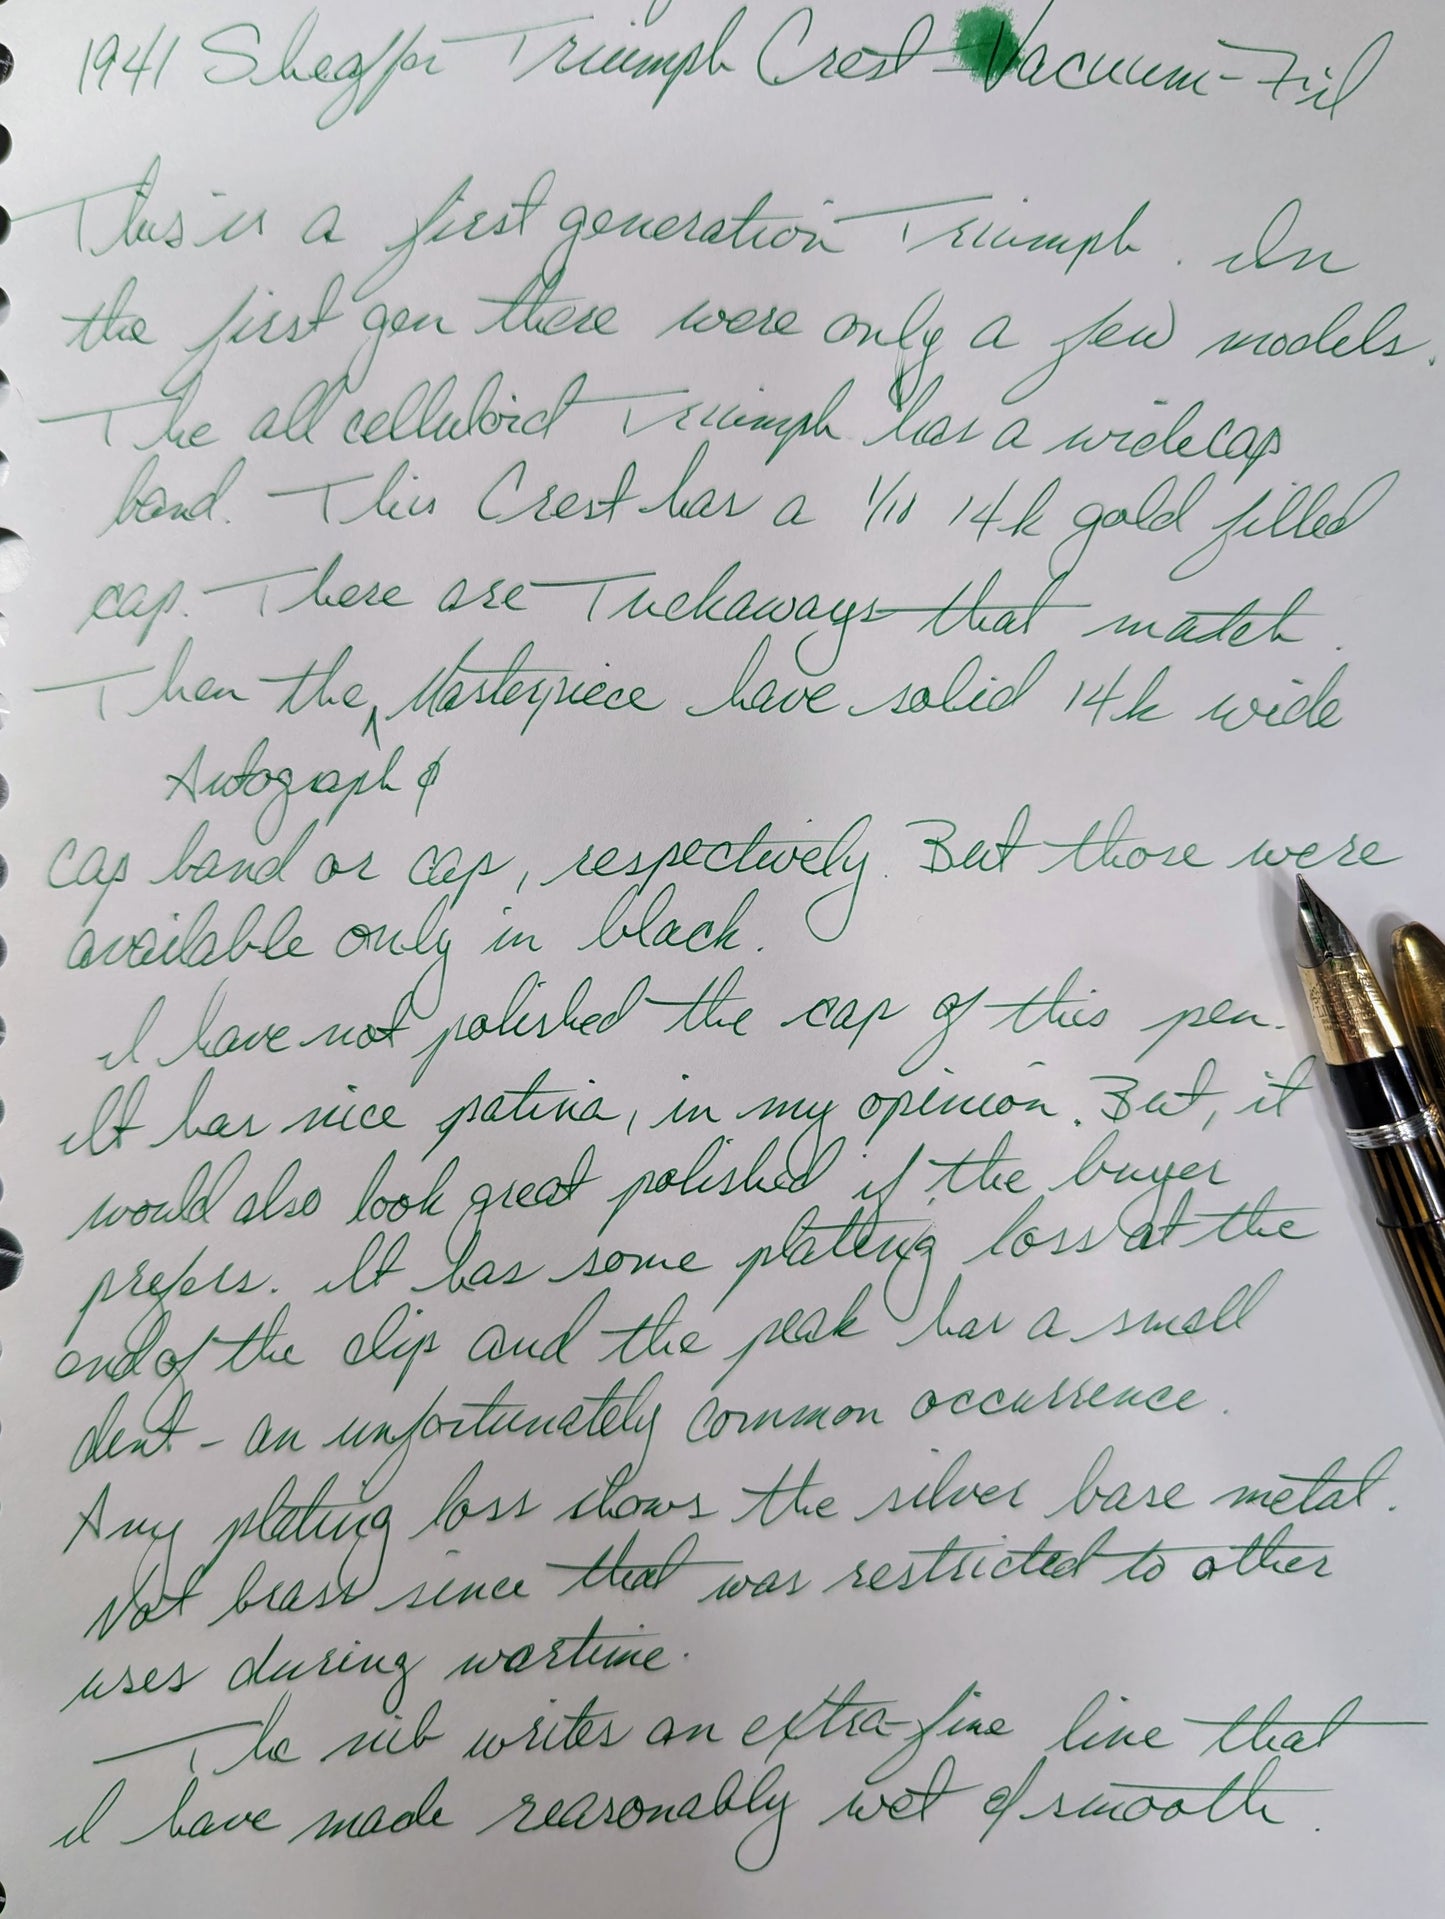 1941 Sheaffer Triumph Crest Vacuum-Fil
This is a first generation Triumph. In
the first gen there were only a few models.
The all celluloid Triumph has a wide cap
band. This Crest has a 1/10 14k gold filled
cap. There are Tuckaways that match.
Then the ^ Masterpiece have solid 14k wide
Autograph &
cap band or cap, respectively. But those were
available only in black.
I have not polished the cap of this pen.
It has nice patina, in my opinion. But, it
would also look great polished if the buyer
prefers. It has some plating loss at the
end of the clip and the peak has a small
dent - an unfortunately common occurrence.
Any plating loss shows the silver base metal.
Not brass since that was restricted to other
uses during wartime.
The nib writes an extra-fine line that
I have made reasonably wet & smooth.